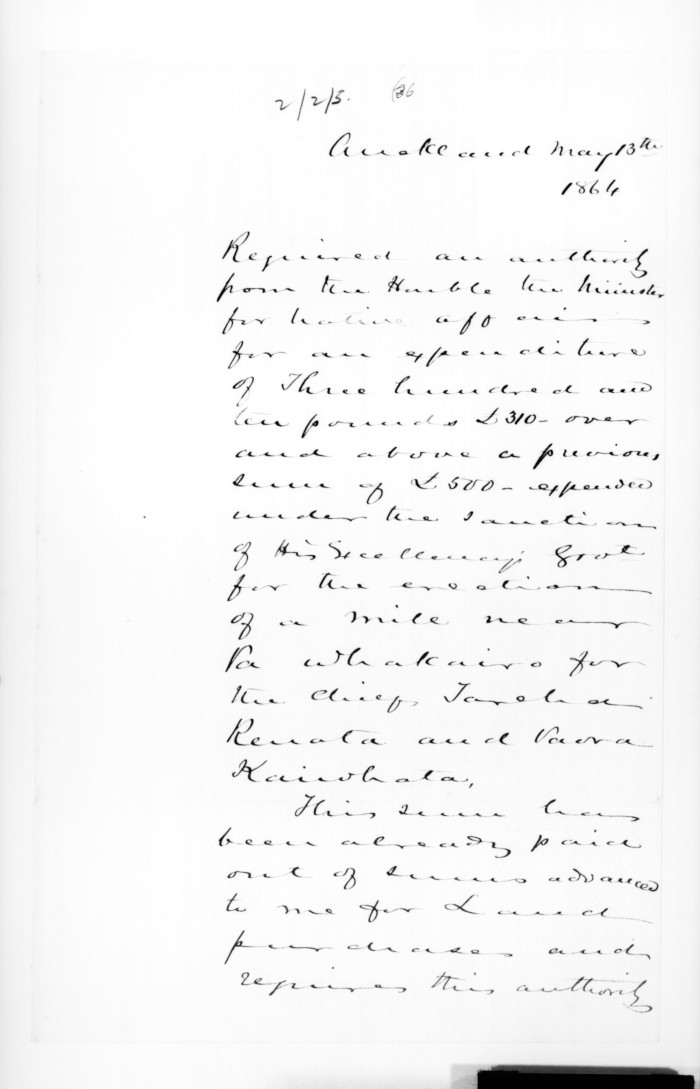 2/2/3. 86
Auckland May 13th
1864
Required an authority
from the Honble the Minister
for native affairs
for an expenditure
of Three hundred and
ten pounds £310 - over
and above a previous
sum of £500 - expended
under the sanction
of His Excellency's Govt
for the erection
of a mill near
Pa Whakairo for
the chiefs Tareha
Renata and Paora
Kaiwhata,
This sum has
been already paid
out of sums advanced
to me for Land
purchases and
requires this authority